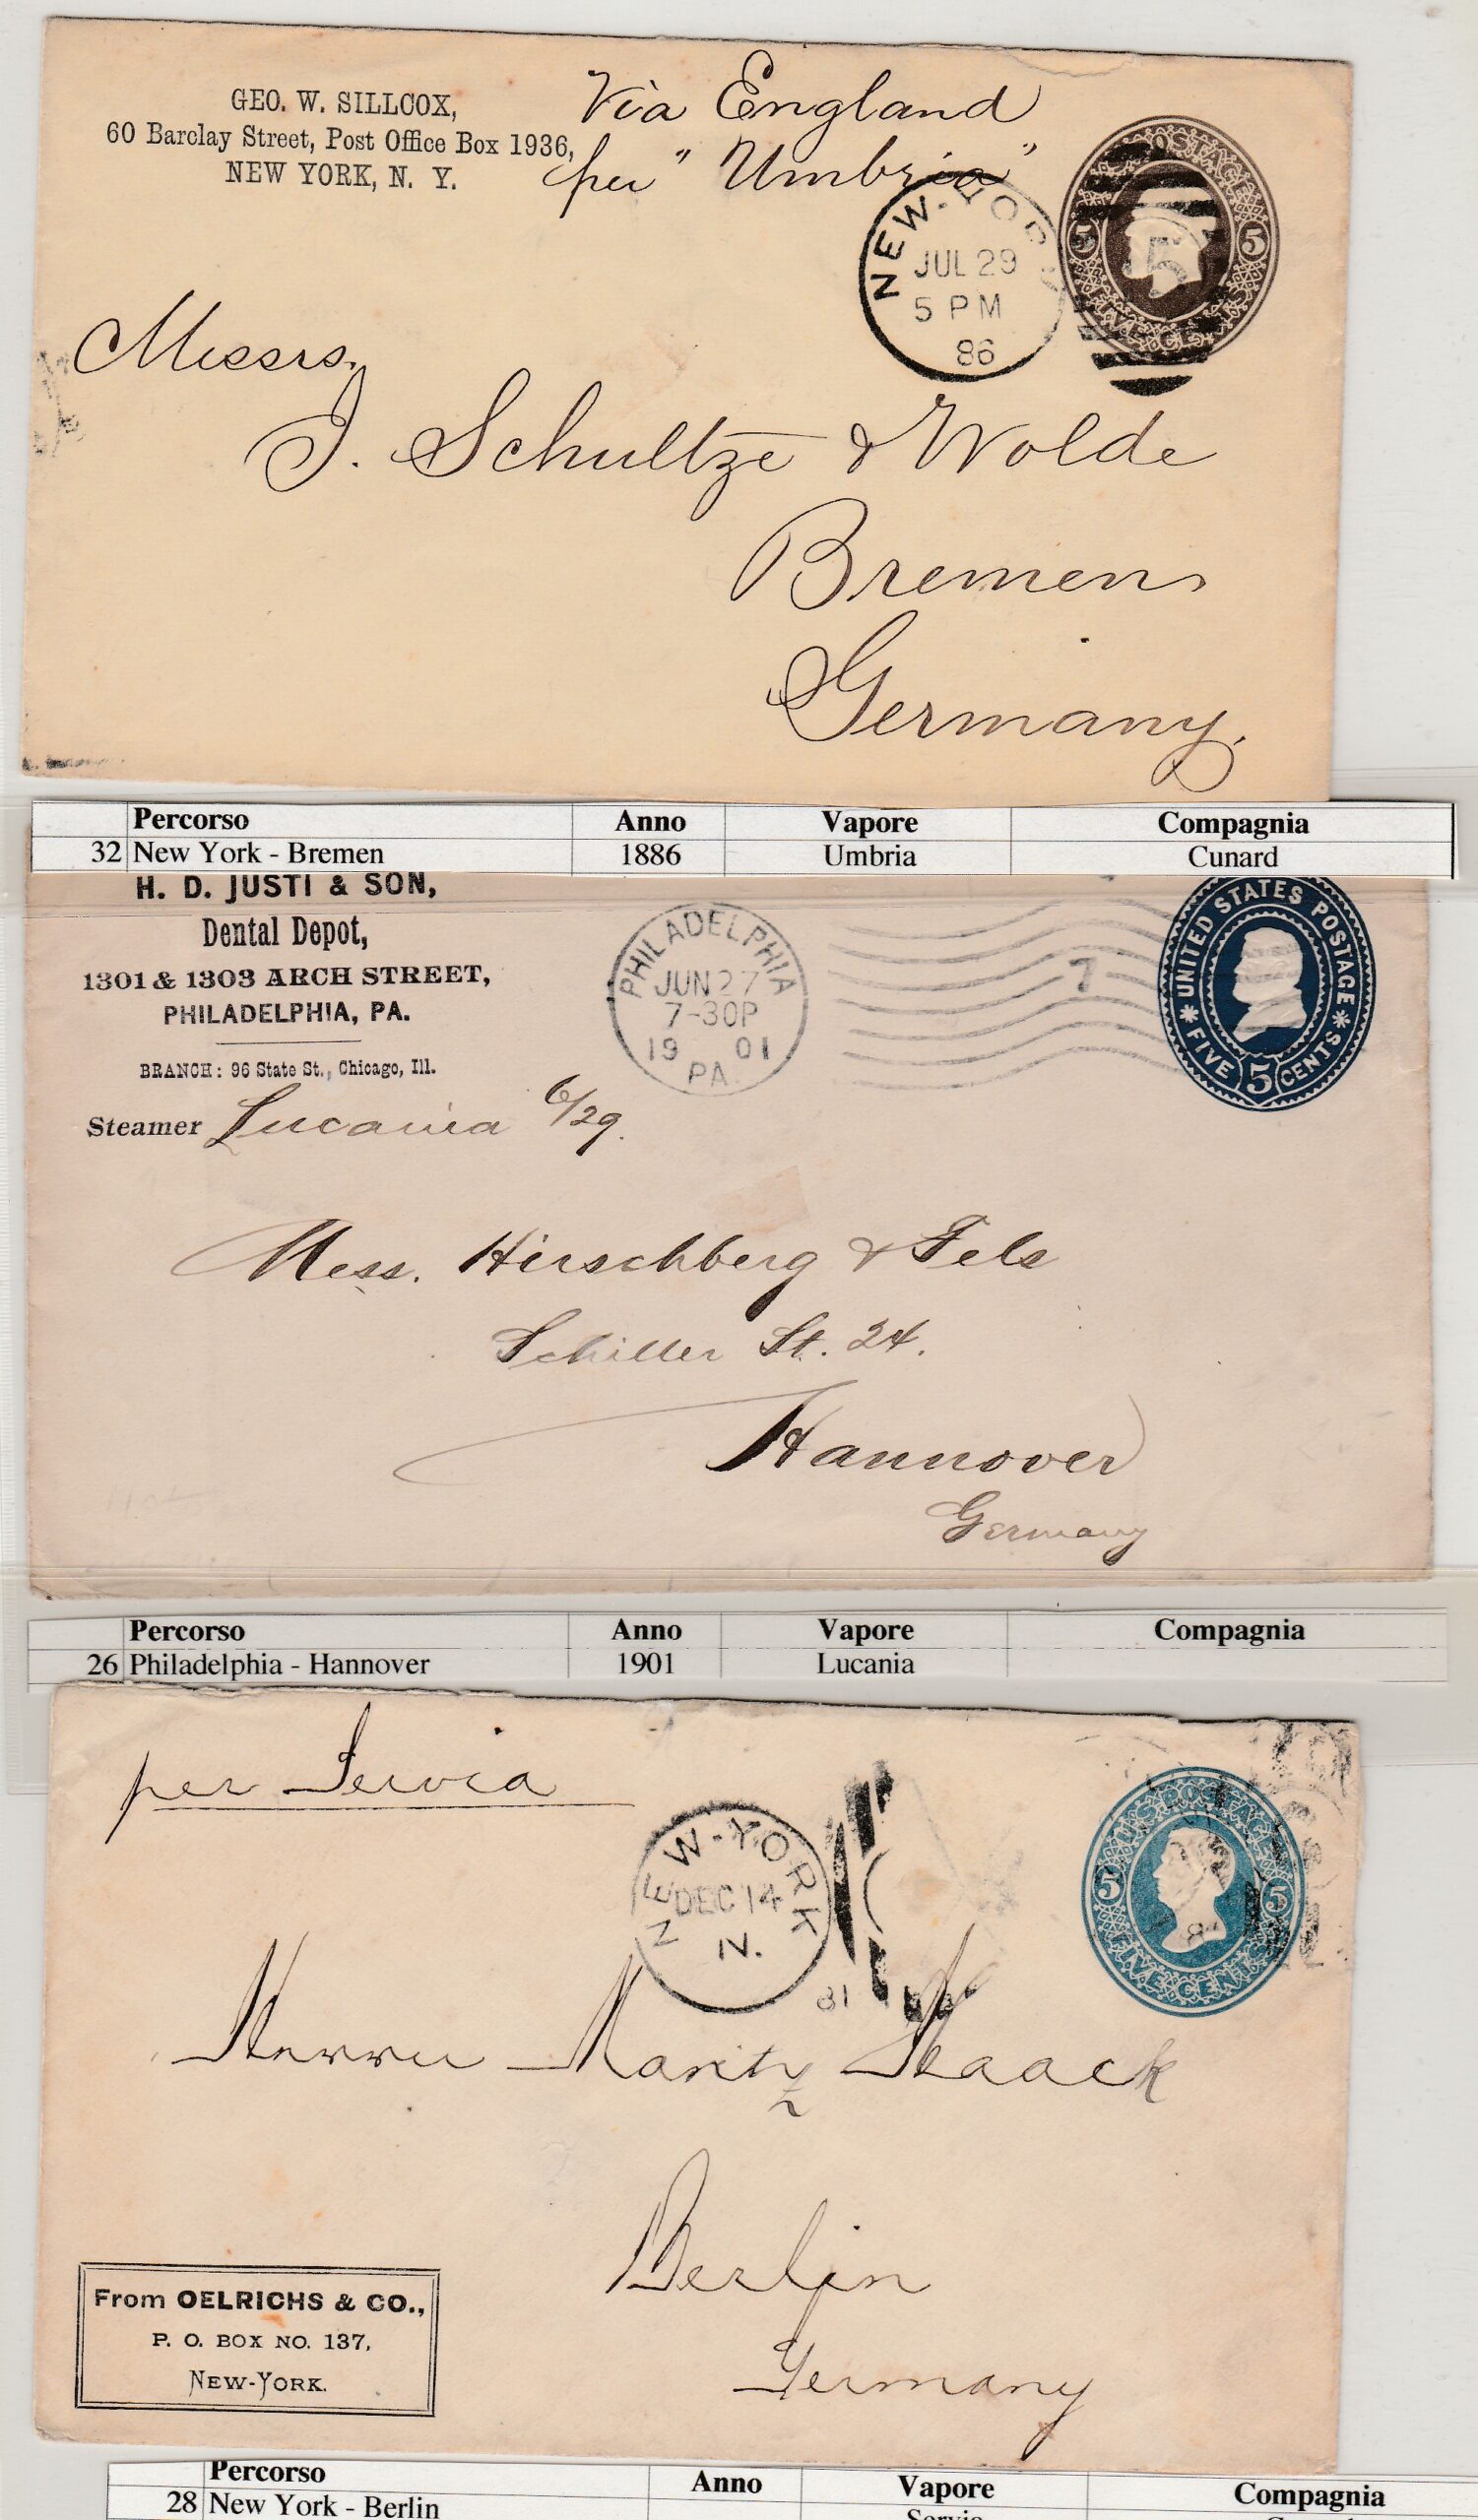 GEO. W. SILLCOX,
60 Barclay Street, Post Office Box 1936,
NEW YORK, N. Y.
Via England
per "Umbria"
NEW-YOR
JUL 29
5 PM
86
POSTAGE
5
5
5
Messrs.
J. Schultze & Wolde
Bremen
Germany.
Percorso Anno Vapore Compagnia
32 New York - Bremen 1886 Umbria Cunard
H. D. JUSTI & SON,
Dental Depot,
1301 & 1303 ARCH STREET,
PHILADELPHIA, PA.
BRANCH: 96 State St., Chicago, Ill.
Steamer Lucania 6/29.
PHILADELPHIA
JUN 27
7-30P
19 01
PA
7
UNITED STATES POSTAGE
FIVE 5 CENTS
Mess. Hirschberg & Fels
Schiller St. 24.
Hannover
Germany
Percorso Anno Vapore Compagnia
26 Philadelphia - Hannover 1901 Lucania
per Servia
NEW-YORK
DEC 14
IV.
81
U.S. POSTAGE
5 5
FIVE CENTS
Herrn Moritz Isaack
Berlin
Germany
From OELRICHS & CO.,
P. O. BOX NO. 137,
NEW-YORK.
Percorso Anno Vapore Compagnia
28 New York - Berlin Servia